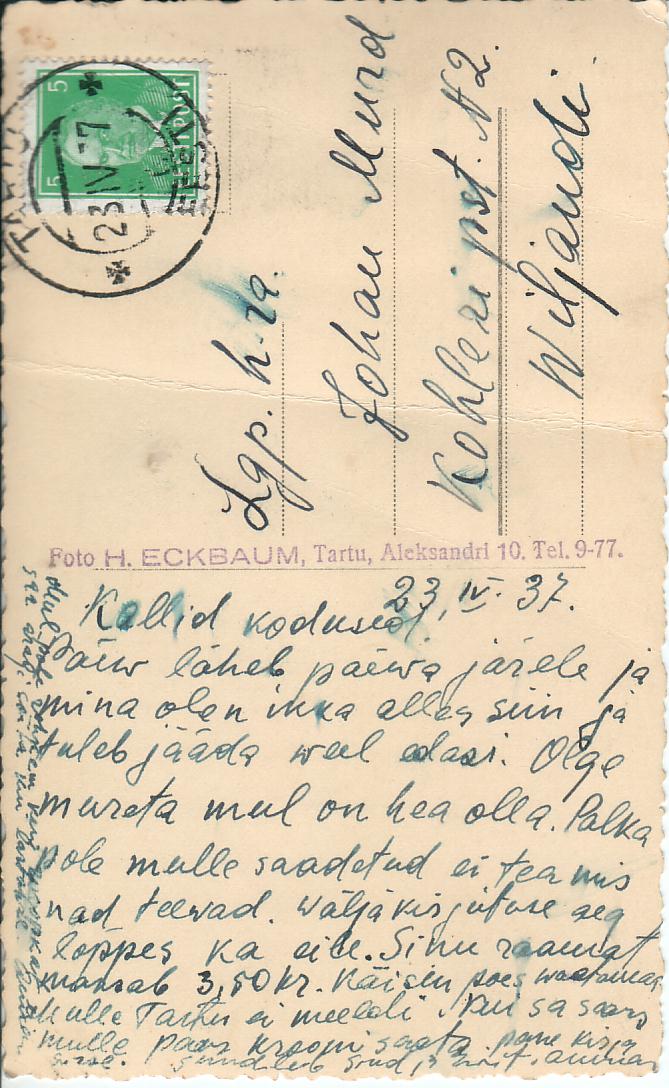 5 5
EESTI POST
TARTU
EESTI
23 IV 37
Lgp. h-ra.
Johan Murd
Köhleri pst. N 2.
Wiljandi.
Foto H. ECKBAUM, Tartu, Aleksandri 10. Tel. 9-77.
23. IV. 37.
Kallid kodused!
Päew läheb päewa järele ja
mina olen ikka alles siin ja
tuleb jääda weel edasi. Olge
mureta mul on hea olla. Palka
pole mulle saadetud ei tea mis
nad teewad. Wäljakirjutuse aeg
lõppes ka eile. Sinu raamat
maksab 3,50 kr. Käisin poes waatamas
Mulle Tartu ei meeldi. Kui sa saax
mulle paar krooni saata pane kirja
sisse.
Mul pole rohkem